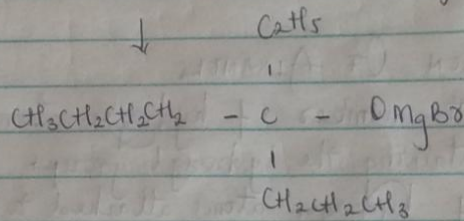 ↓
C2H5
|
CH3CH2CH2CH2 - C - OMgBr
|
CH2CH2CH3